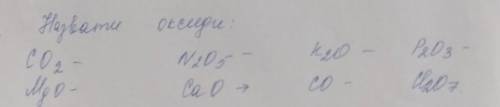 Назвати оксиди:
CO2 - N2O5 - K2O - P2O3 -
MgO - CaO → CO - Cl2O7.